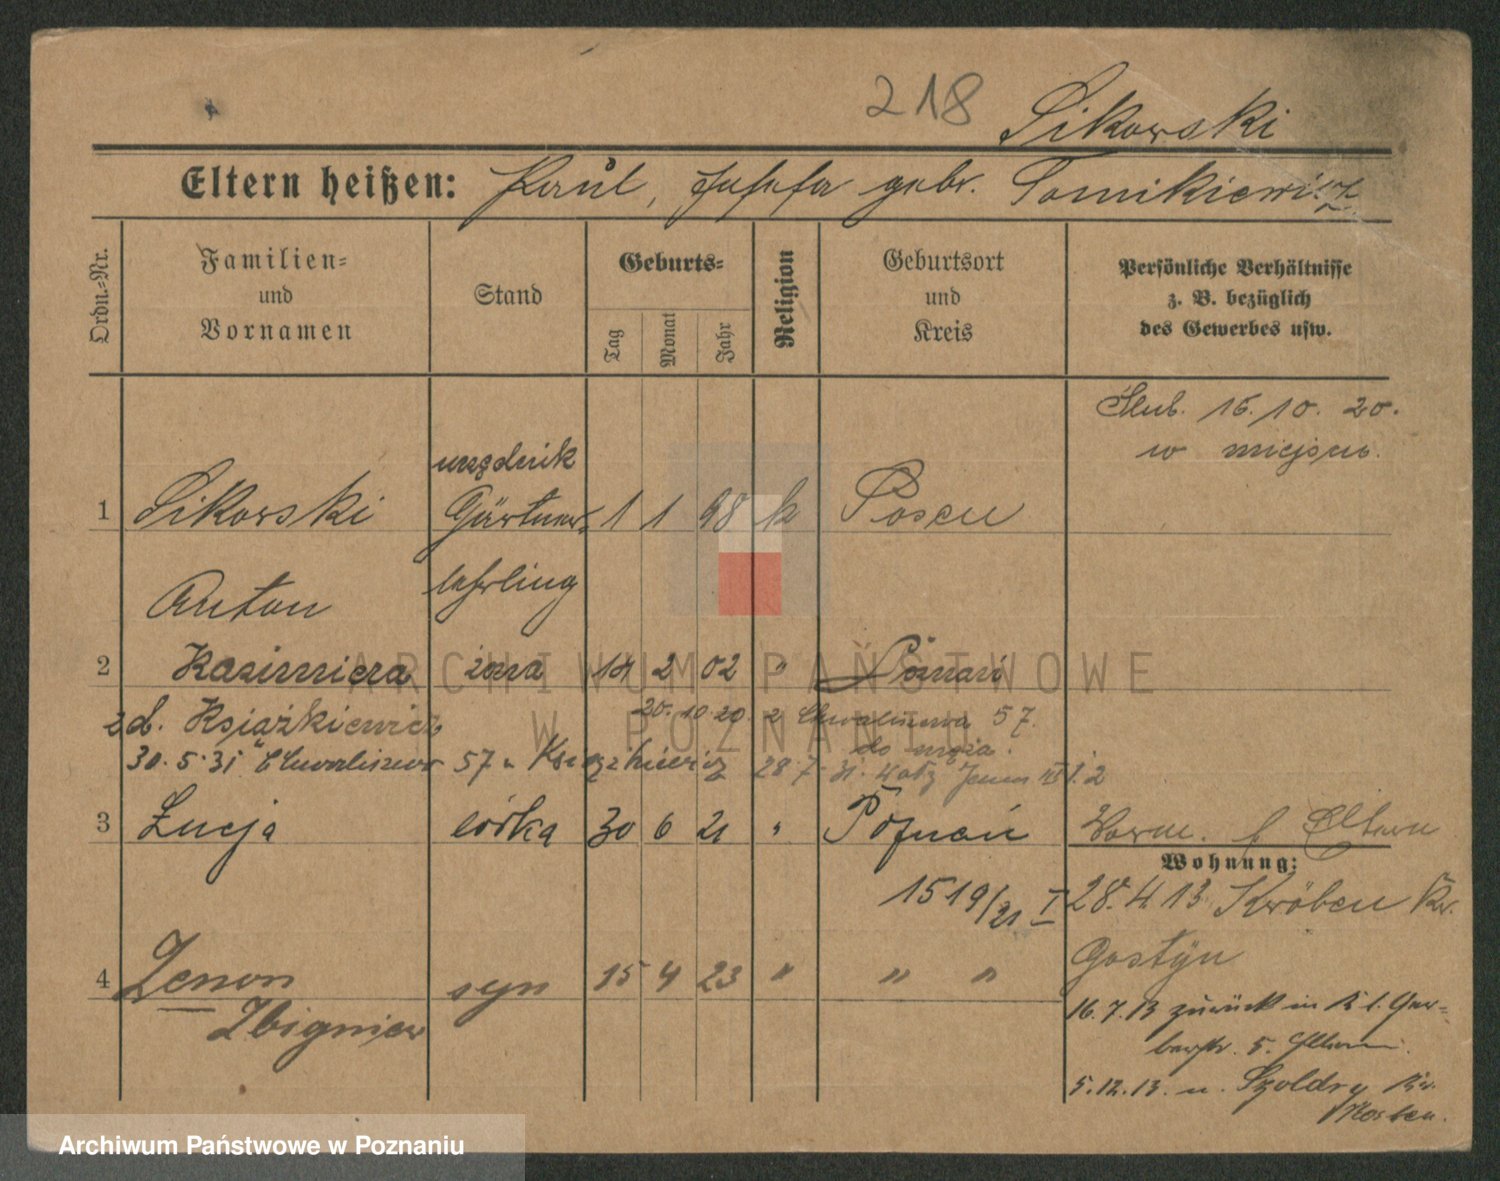 218 Sikorski
Eltern heißen: Paul, Josefa gebr. Tomikiewicz
Ordn.-Nr.
Familien-
und
Vornamen
Stand
Geburts-
Tag
Monat
Jahr
Religion
Geburtsort
und
Kreis
Persönliche Verhältnisse
z. B. bezüglich
des Gewerbes usw.
Ślub. 16. 10. 20.
w miejscu.
urzędnik
1 Sikorski Gärtner 1 1 98 k Posen
Anton lehrling
2 Kazimiera żona 14 2 02 " Poznań
zd. Książkiewicz 20. 10. 20. z 57.
do męża.
30. 5. 31 57 u Książkiewicz 28. 7. 31. I. 2
3 Łucja córka 30 6 21 " Poznań Eltern
Wohnung:
1519/21 I 28. 4. 13 Kröben Kr.
Gostyn
4 Zenon syn 15 4 23 " " "
Zbigniew
16. 7. 13 zurück in
5. Eltern.
5. 12. 13. n. Szoldry Kr.
Kosten.
ARCHIWUM PAŃSTWOWE
W POZNANIU
Archiwum Państwowe w Poznaniu